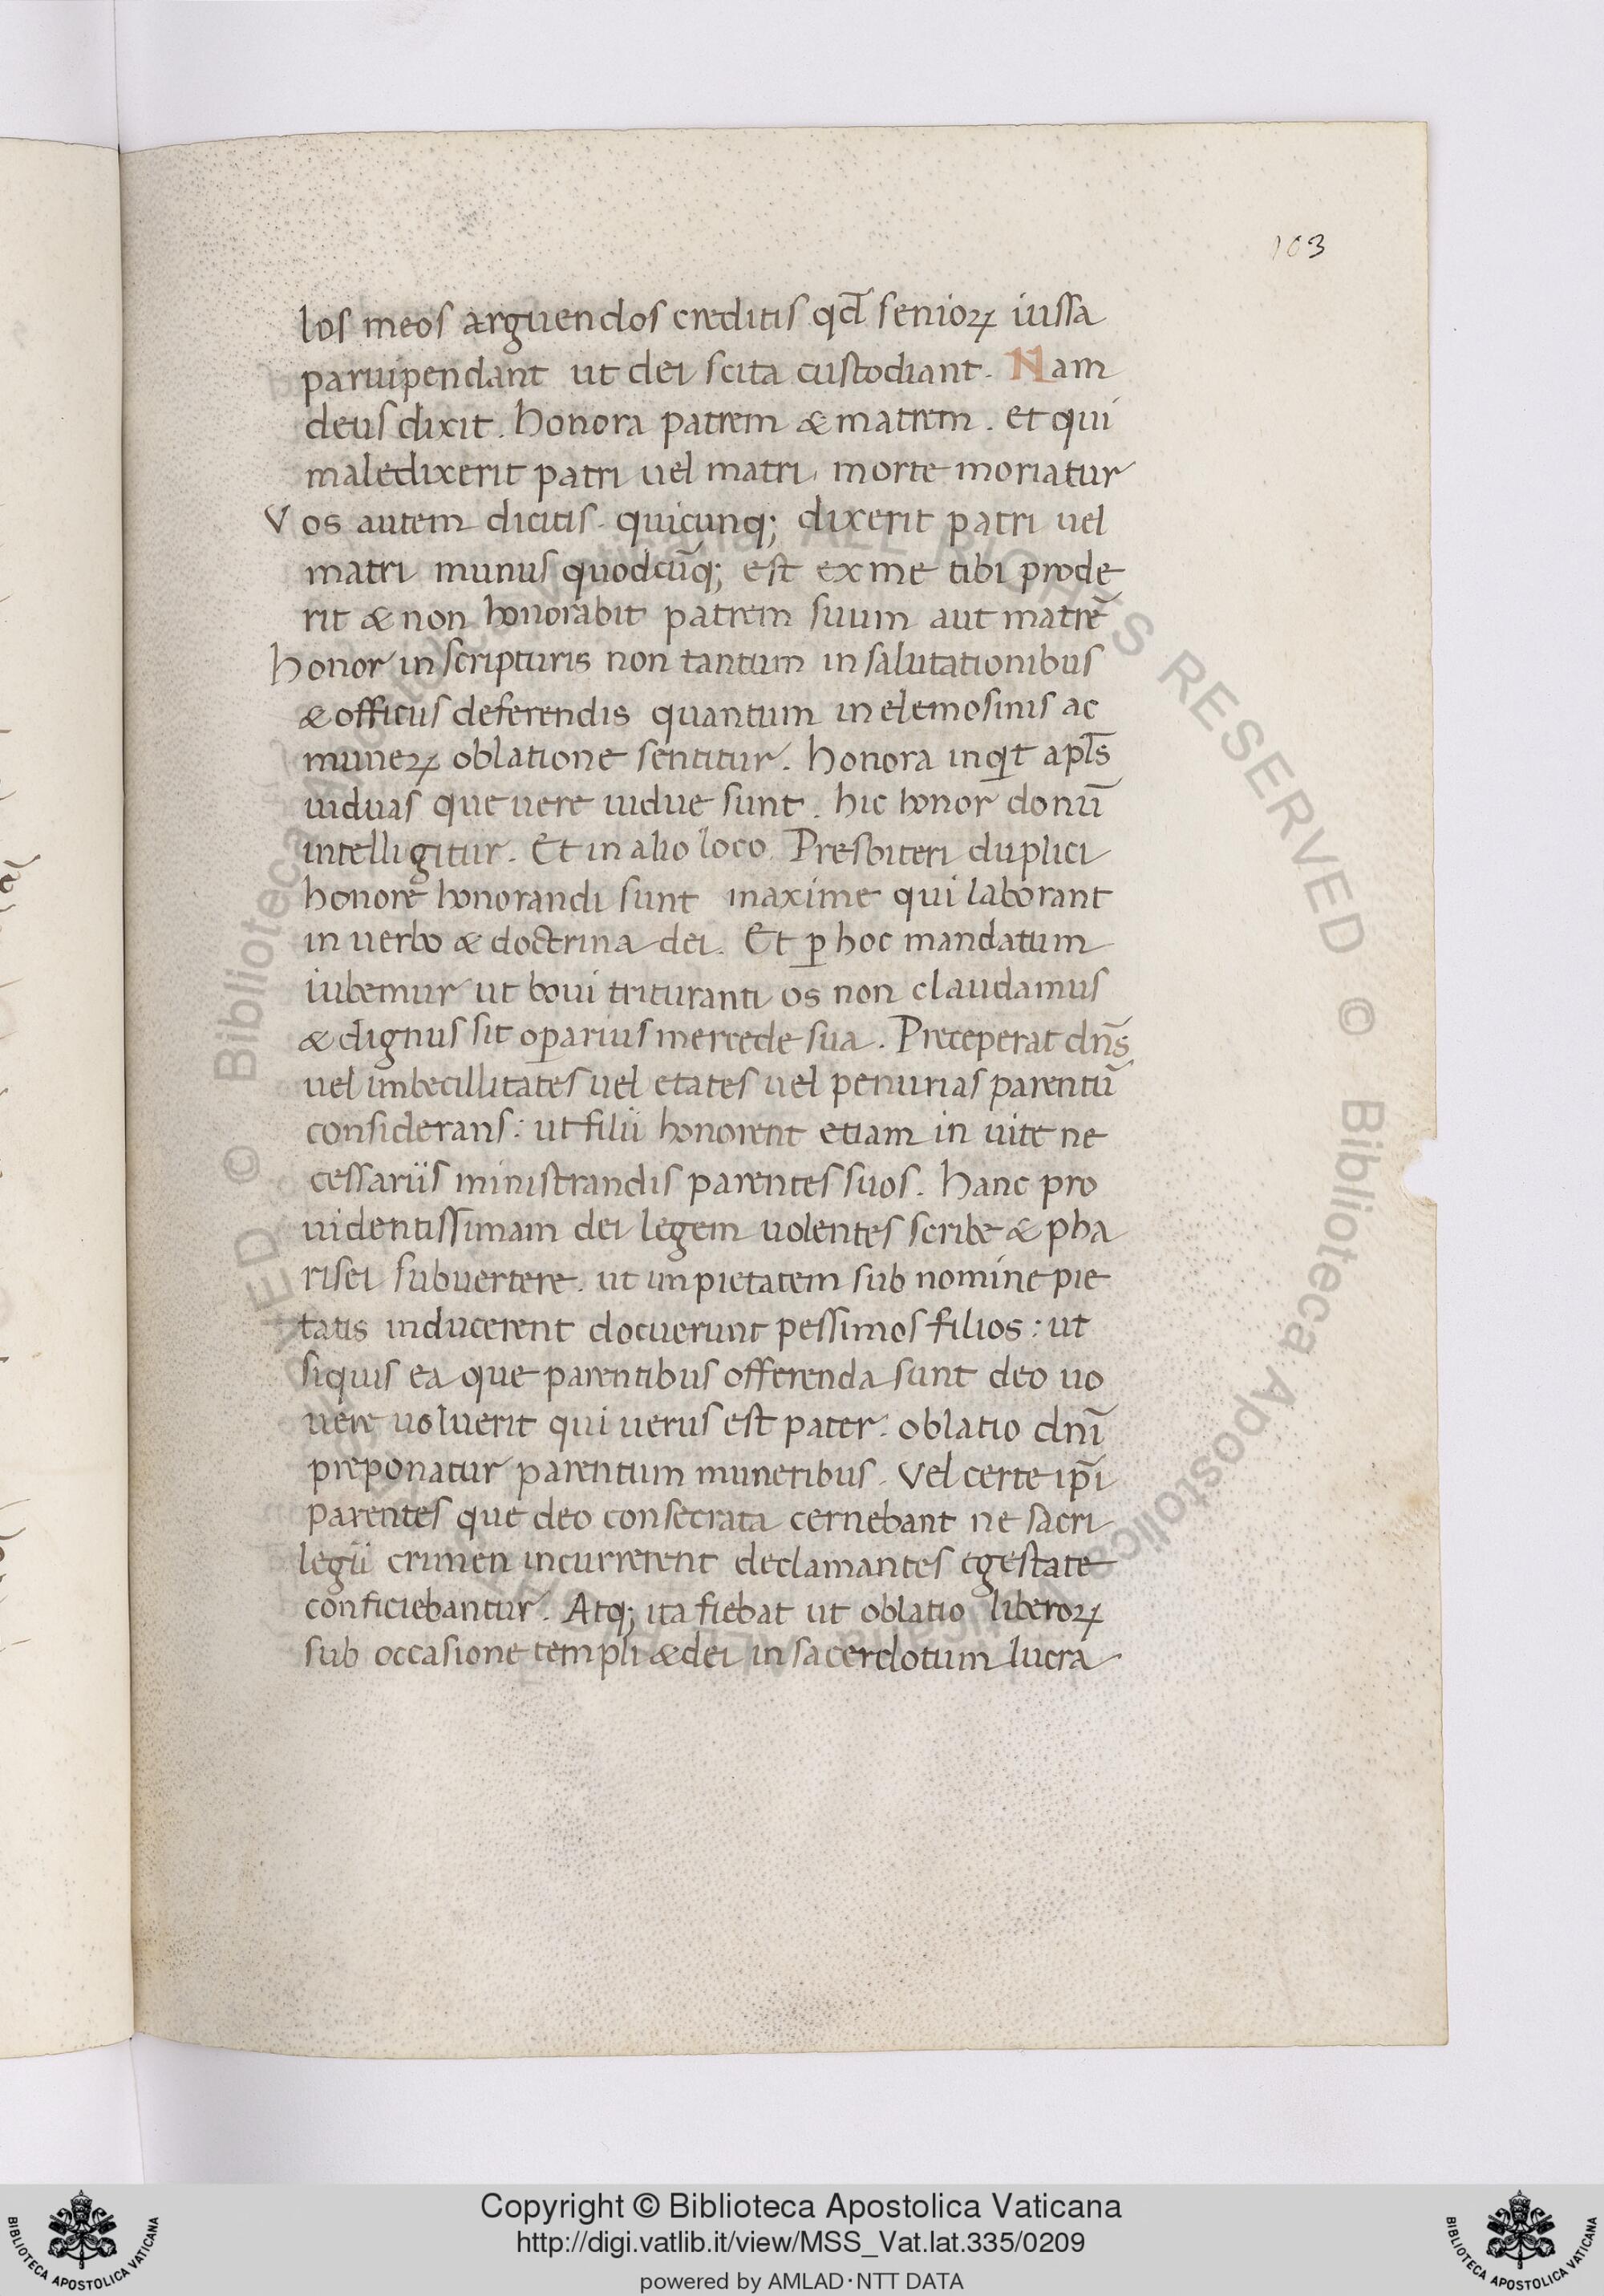 103
los meos arguendos creditis qd̄ senioꝝ iussa
paruipendant ut dei scita custodiant. Nam
deus dixit. honora patrem & matrem. et qui
maledixerit patri uel matri morte moriatur
Vos autem dicitis. quicunq; dixerit patri uel
matri munus quodcūq; est ex me tibi prode
rit & non honorabit patrem suum aut matrē
honor in scripturis non tantum in salutationibus
& officiis deferendis quantum in elemosinis ac
muneꝝ oblatione sentitur. honora inqt apl̄s
uiduas que uere uidue sunt. hic honor donū
intelligitur. Et in alio loco. Presbiteri duplici
honore honorandi sunt maxime qui laborant
in uerbo & doctrina dei. Et ꝑ hoc mandatum
iubemur ut boui trituranti os non claudamus
& dignus sit oꝑarius mercede sua. Preceperat dn̄s
uel imbecillitates uel etates uel penurias parentū
considerans: ut filii honorent etiam in uite ne
cessariis ministrandis parentes suos. hanc pro
uidentissimam dei legem uolentes scribe & pha
risei subuertere. ut impietatem sub nomine pie
tatis inducerent docuerunt pessimos filios: ut
siquis ea que parentibus offerenda sunt deo uo
uere uoluerit qui uerus est pater. oblatio dnī
preponatur parentum muneribus. Vel certe ip̄i
parentes que deo consecrata cernebant ne sacri
legii crimen incurrerent declamantes egestate
conficiebantur. Atq; ita fiebat ut oblatio liberoꝝ
sub occasione templi & dei in sacerdotum lucra
Copyright © Biblioteca Apostolica Vaticana
http://digi.vatlib.it/view/MSS_Vat.lat.335/0209
powered by AMLAD·NTT DATA
BIBLIOTECA APOSTOLICA VATICANA
BIBLIOTECA APOSTOLICA VATICANA